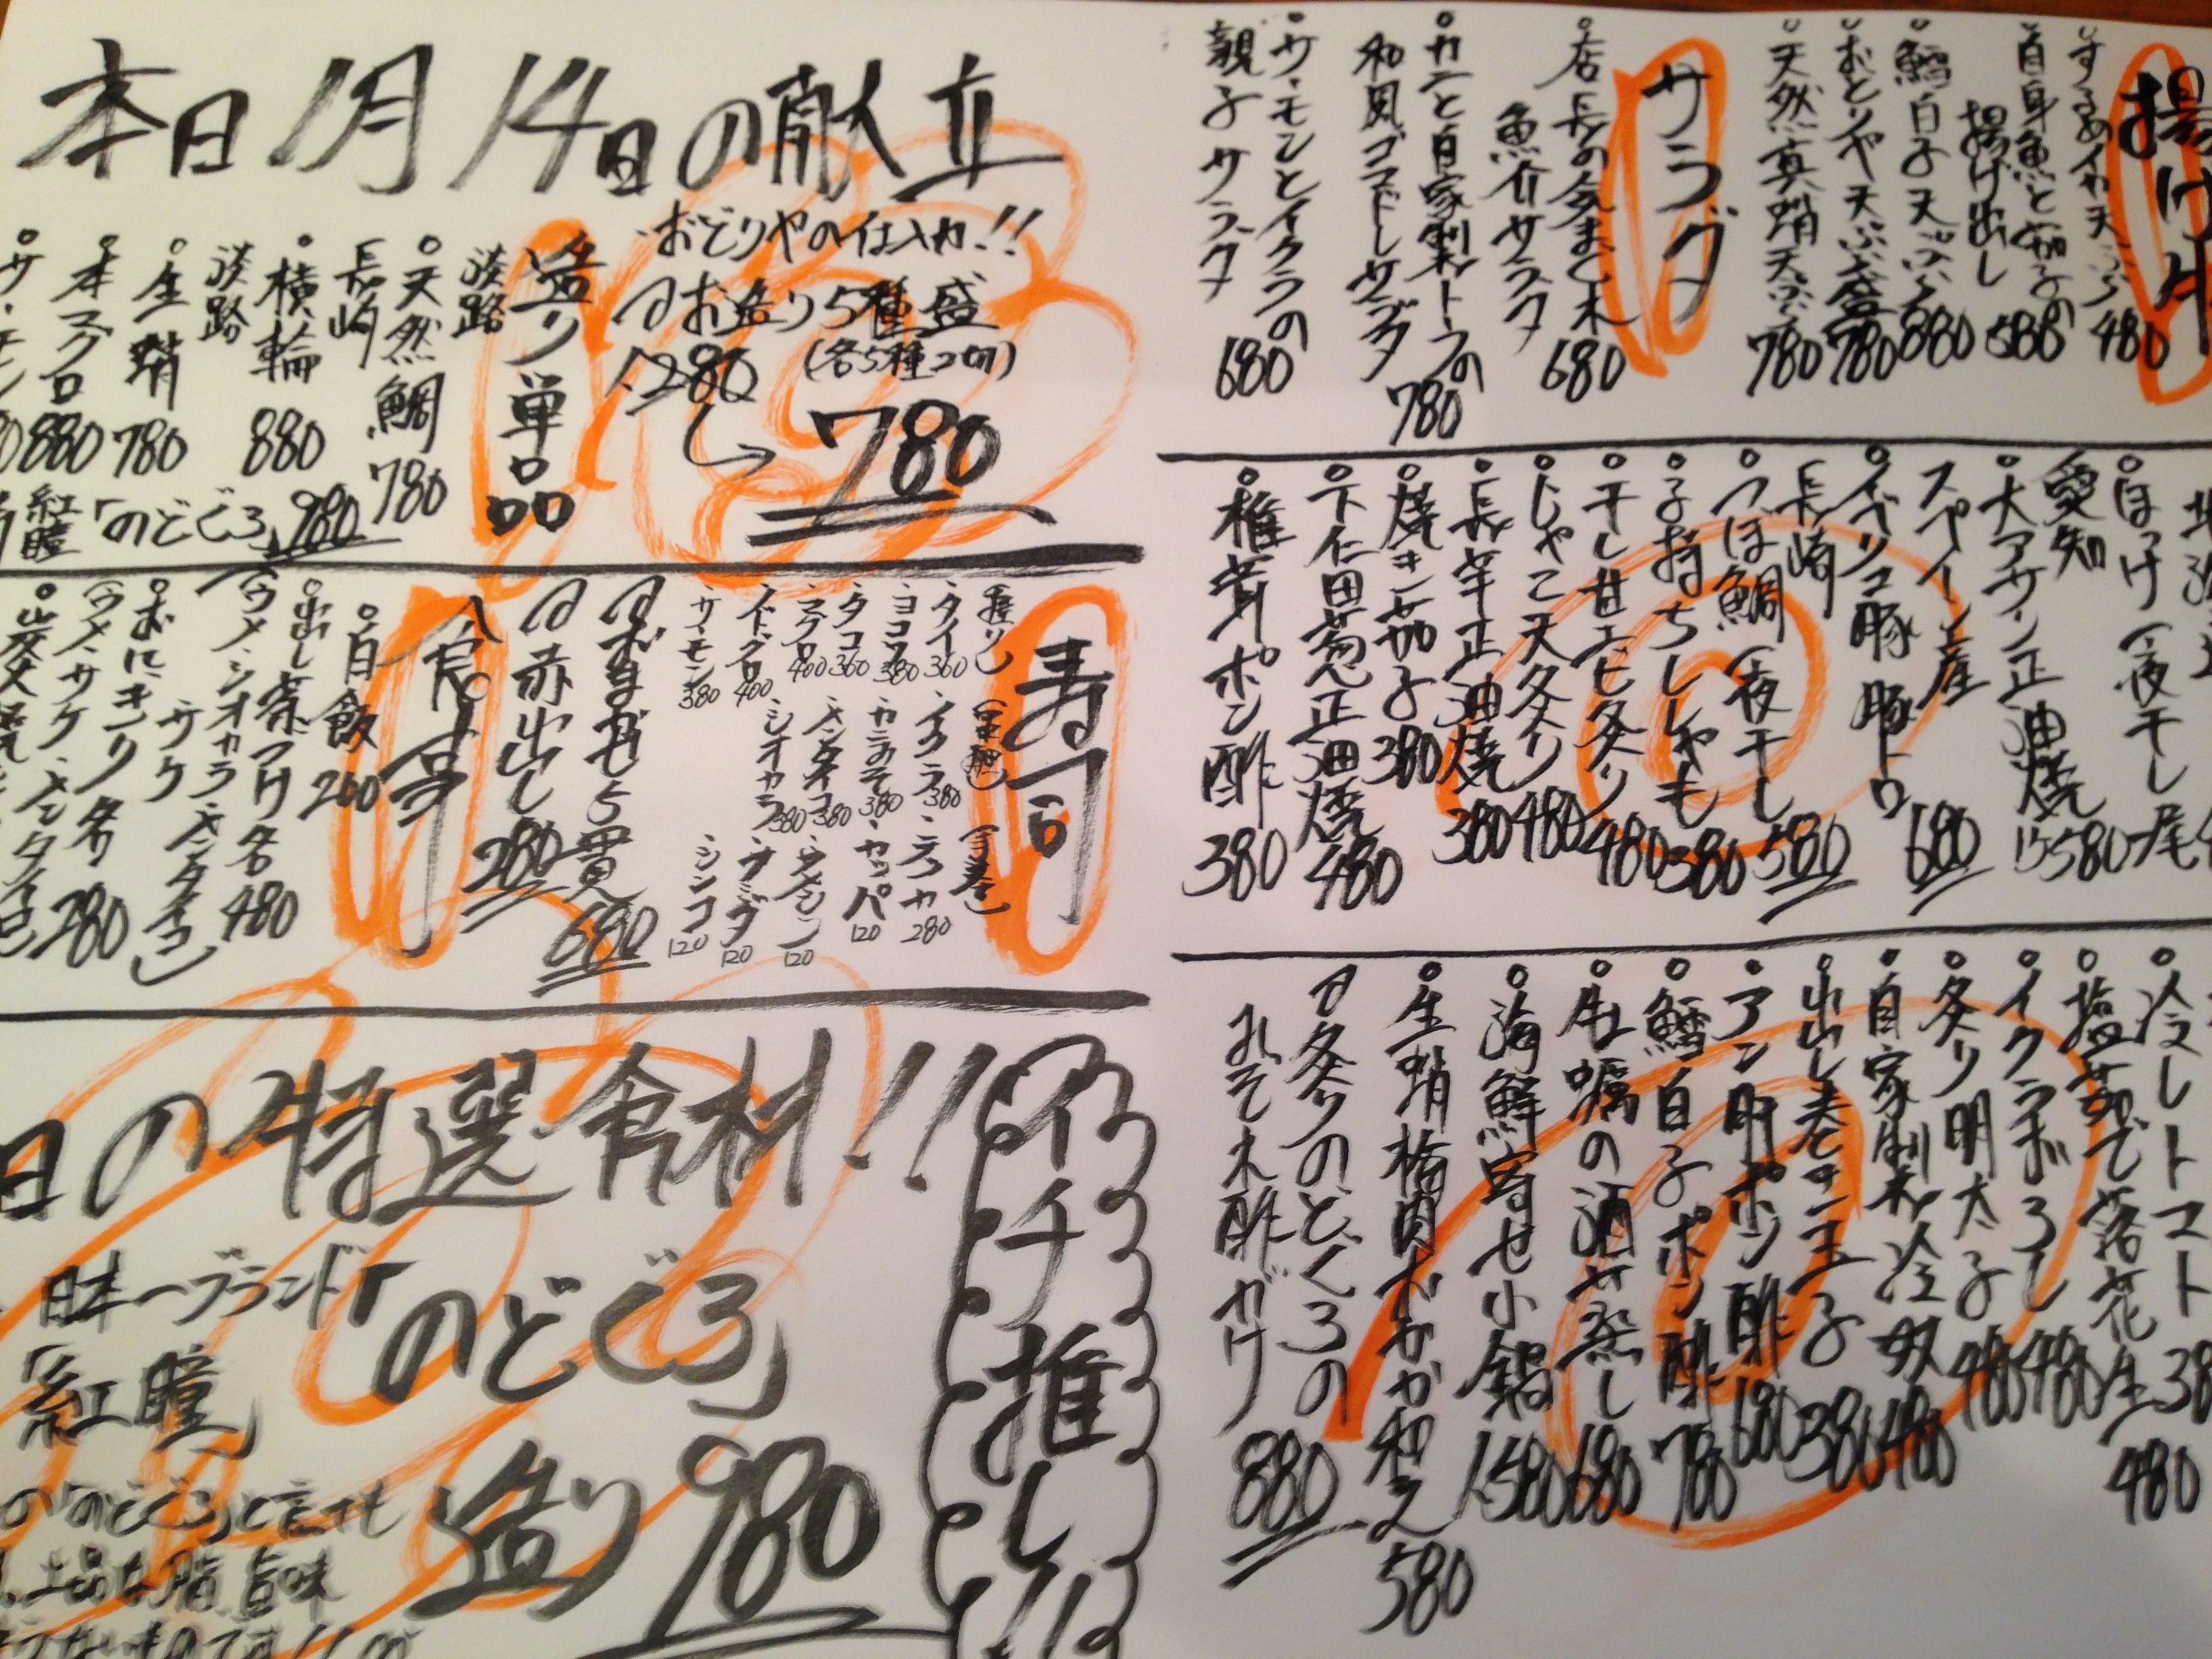 本日1月14日の献立
おどりやの仕入力!!
お造り5種盛
(各5種2切)
1280
780
造り単品
淡路
天然鯛 780
長崎
横輪 880
淡路
生蛸 780
本マグロ 880
サーモン
紅瞳「のどぐろ」980
寿司
(握り)
タイ 360
ヨコワ 380
タコ 360
マグロ 400
ノドグロ 400
サーモン 380
(軍艦)
イクラ 380
カニみそ 380
メンタイコ 380
シオカラ 380
(手巻き)
テッカ 280
カッパ 120
シンコ 120
おまかせ5貫 680
赤出し 280
食事
白飯 200
出し茶づけ各 480
(ウメ・シオカラ・メンタイコ
サケ)
おにぎり各 280
(ウメ・サケ・メンタイコ)
日の特選食材!!
日本一ブランド
「紅瞳」
「のどぐろ」
造り 980
の「のどぐろ」と言っても
上品な脂、旨味
イチ推し!!
揚げ物
するめイカ天ぷら 480
白身魚と茄子の
揚げ出し 580
鱈白子天ぷら 880
おどりや天ぷら盛 780
天然真蛸天ぷら 780
サラダ
店長の気まぐれ
魚介サラダ 680
カニと自家製トーフの
和風ゴマドレサラダ 780
サーモンとイクラの
親子サラダ 680
ほっけ一夜干し
愛知
大アサリ正油焼 1ケ580
スペイン産
イベリコ豚 豚トロ 680
長崎
つぼ鯛一夜干し 580
子持ちししゃも 380
干し甘エビ炙り 480
じゃこ天炙り 480
長芋正油焼 380
焼き茄子 380
下仁田葱正油焼 480
椎茸ポン酢 380
冷しトマト 38
塩茹で落花生 480
イクラおろし 480
炙り明太子 480
自家製冷奴 480
出し巻き玉子 380
アン肝ポン酢 680
鱈白子ポン酢 780
牡蠣の酒蒸し 680
海鮮寄せ小鍋 1580
生蛸梅肉おかか和え 580
炙りのどぐろの
みぞれ酢がけ 880